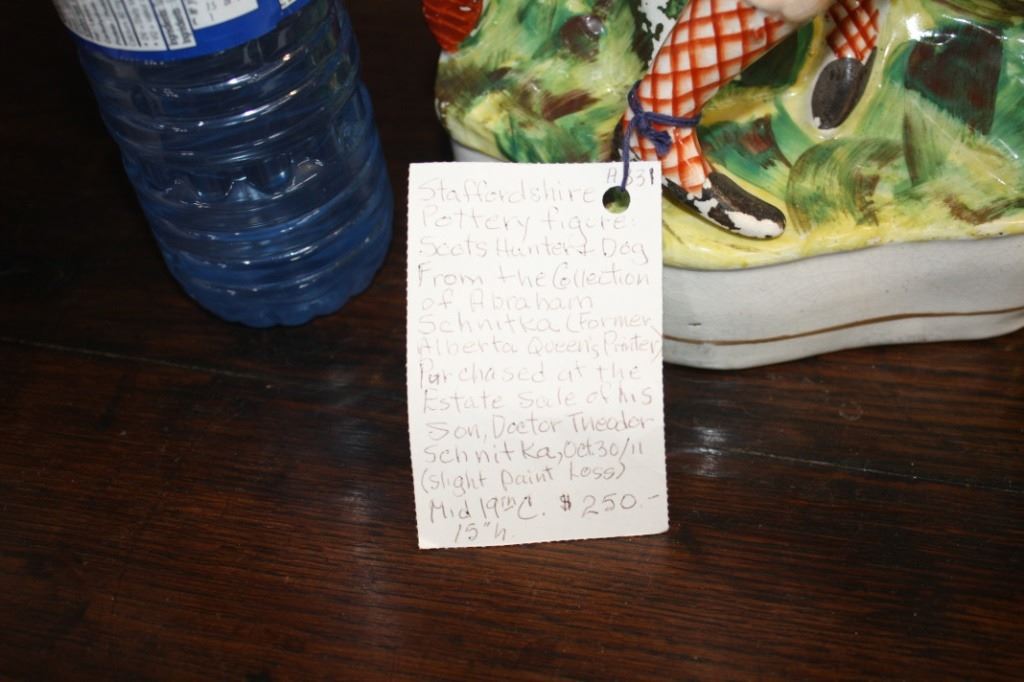 A331
Staffordshire
Pottery figure:
Scots Hunter + Dog
From the Collection
of Abraham
Schnitka (Former
Alberta Queen's Printer)
Purchased at the
Estate Sale of his
Son, Doctor Theodor
Schnitka, Oct 30/11
(slight paint Loss)
Mid 19th C. $250-
15"h.